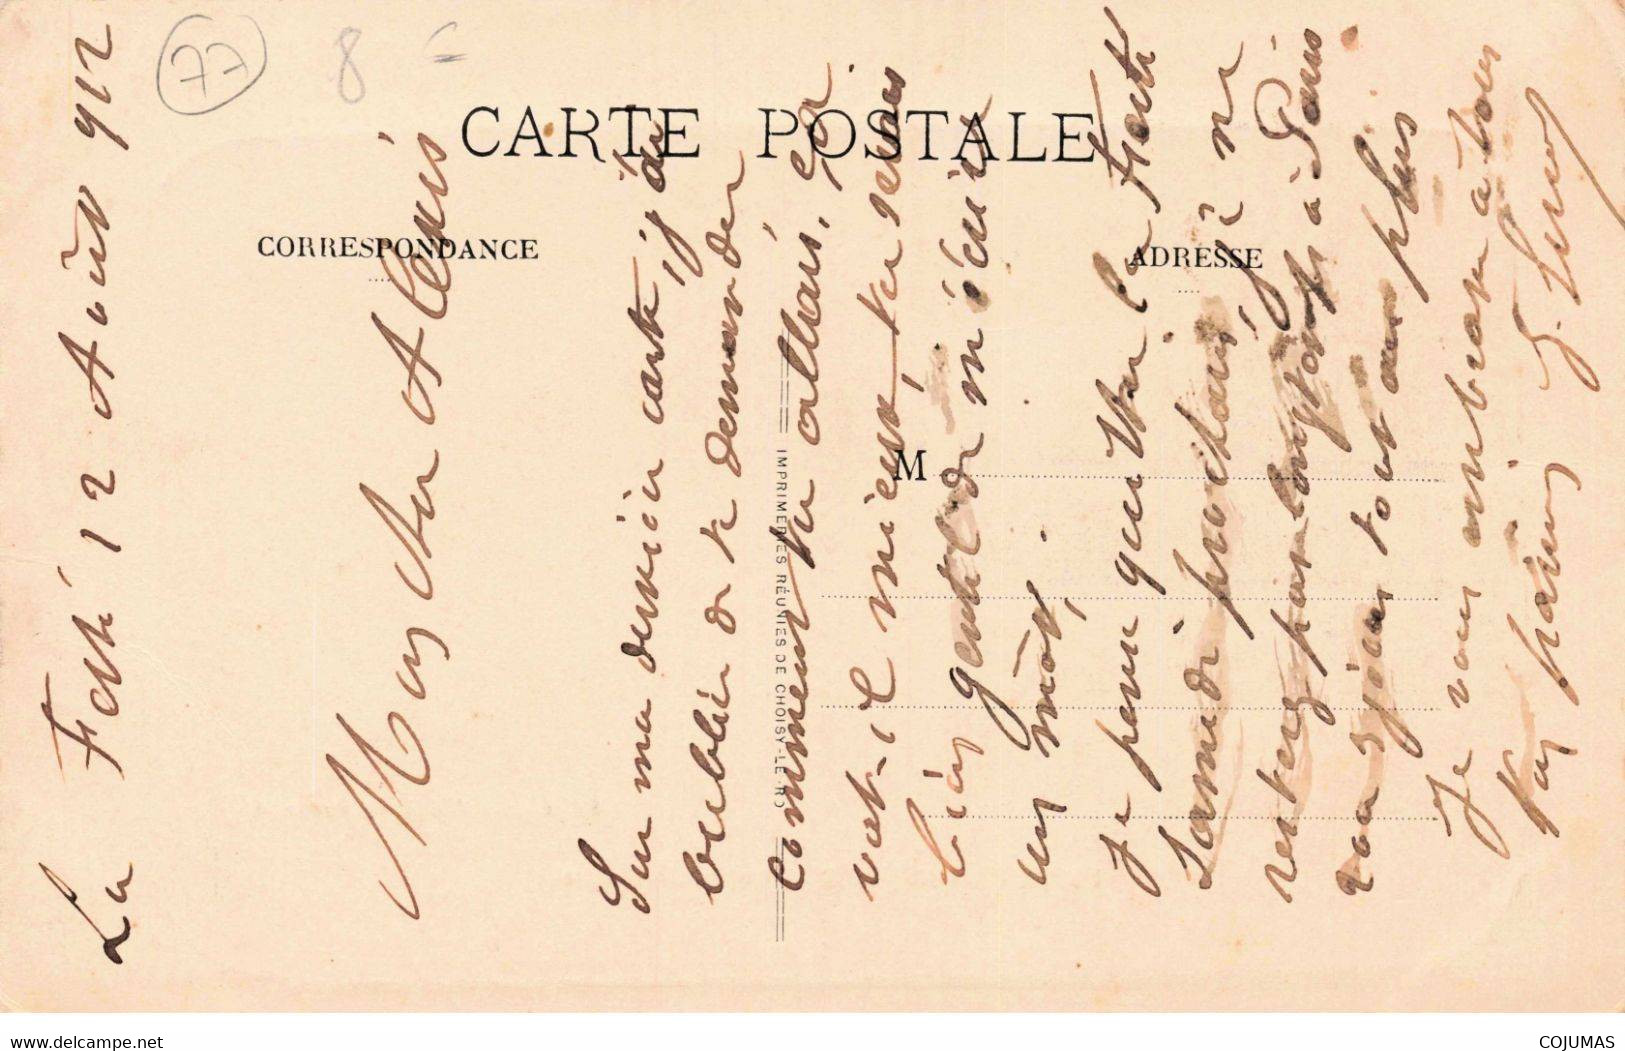 77
8 =
CARTE POSTALE
CORRESPONDANCE
ADRESSE
M
IMPRIMERIES RÉUNIES DE CHOISY-LE-RO
La Ferté 12 Août 912
Mon cher Alexis
Sur ma dernière carte, j'ai
oublié de te demander
comment tu allais, ça
va-t-il mieux, tu serais
bien gentil de m'écrire
un mot,
Je pense quitter la Ferté
Samedi prochain, je ne
resterez pas longtemps à Paris
jours tout au plus
Je vous embrasse à tous
Ton
www.delcampe.net
COJUMAS